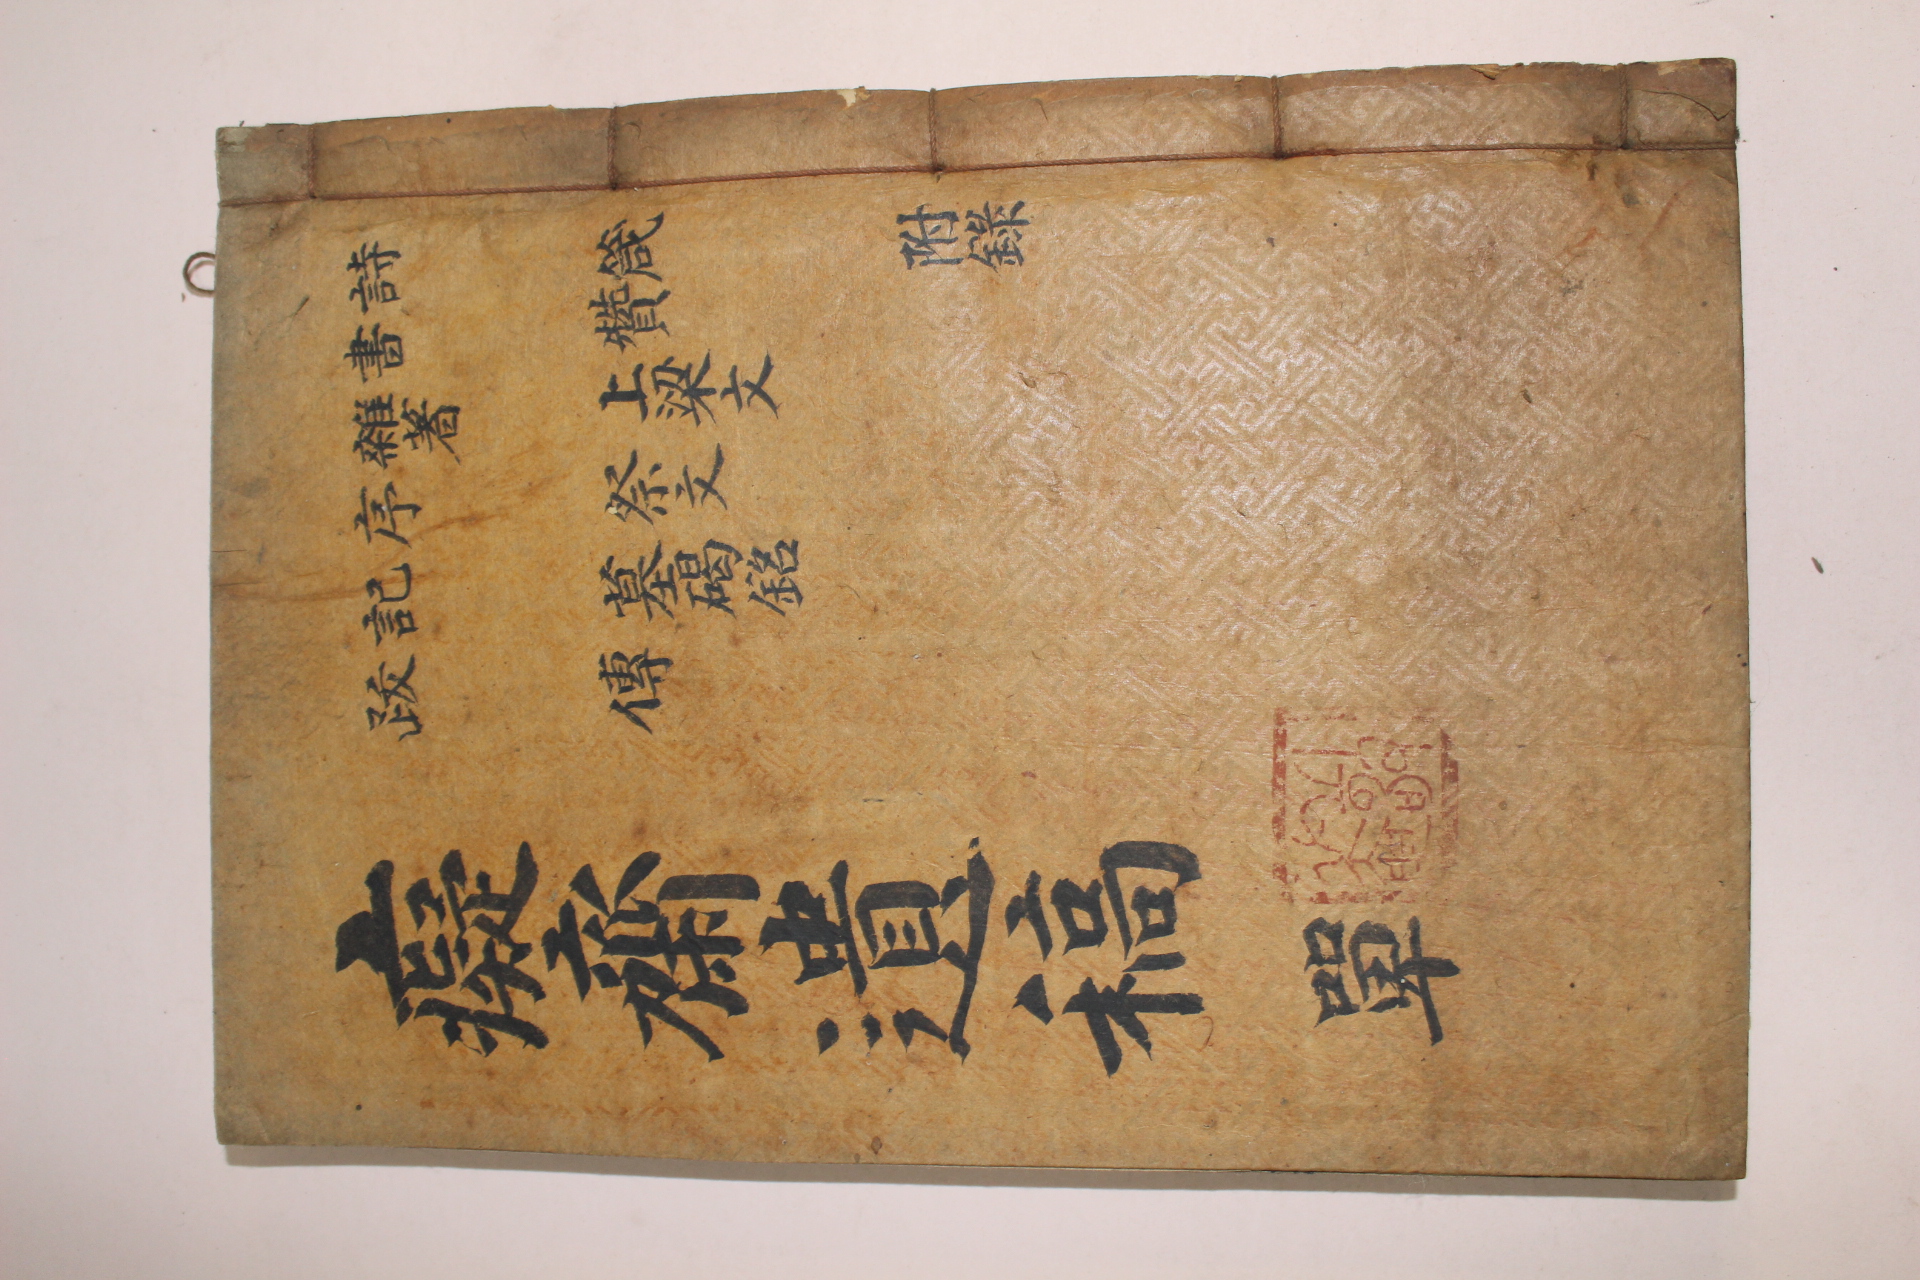 詩
書
雜著
序
記
跋
箴
贊
上梁文
祭文
墓碣銘
傳
附錄
癡齋遺稿 單